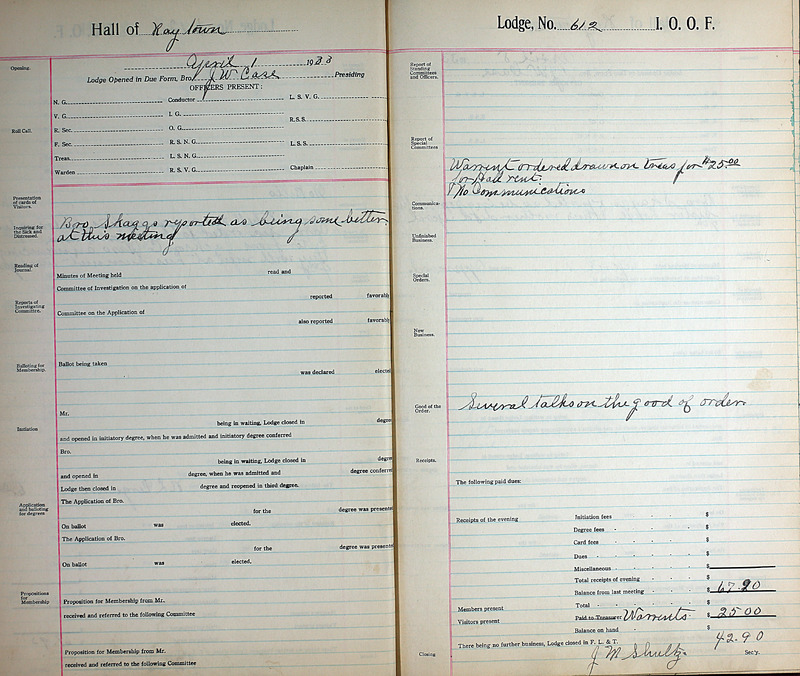 Hall of Raytown
April 1 1933
Opening.
Lodge Opened in Due Form, Bro. J W Case Presiding
OFFICERS PRESENT:
N. G. Conductor L. S. V. G.
V. G. I. G.
R. S. S.
Roll Call.
R. Sec. O. G.
F. Sec. R. S. N. G. L. S. S.
Treas. L. S. N. G.
Warden R. S. V. G. Chaplain
Presentation of cards of Visitors.
Inquiring for the Sick and Distressed.
Bro. Skaggs reported as being some better
at this meeting
Reading of Journal.
Minutes of Meeting held read and
Committee of Investigation on the application of
reported favorably
Reports of Investigating Committee.
Committee on the Application of
also reported favorabl
Balloting for Membership.
Ballot being taken
was declared electe
Mr.
being in waiting, Lodge closed in degre
Initiation
and opened in initiatory degree, when he was admitted and initiatory degree conferred
Bro.
being in waiting, Lodge closed in degre
and opened in degree, when he was admitted and degree conferre
Lodge then closed in degree and reopened in third degree.
Application and balloting for degrees
The Application of Bro.
for the degree was presente
On ballot was elected.
The Application of Bro.
for the degree was presente
On ballot was elected.
Propositions for Membership
Proposition for Membership from Mr.
received and referred to the following Committee
Proposition for Membership from Mr.
received and referred to the following Committee
Lodge, No. 612 I. O. O. F.
Report of Standing Committees and Officers.
Report of Special Committees
Warrent ordered drawn on treas for $25.00
for Hall rent.
No Communications
Communications.
Unfinished Business.
Special Orders.
New Business.
Good of the Order.
Several talks on the good of order.
Receipts.
The following paid dues:
Receipts of the evening Initiation fees $
Degree fees $
Card fees $
Dues $
Miscellaneous $
Total receipts of evening $
Balance from last meeting $ 67.90
Members present Total $
Visitors present Paid to Treasurer Warrents $ 25 00
Balance on hand $ 42.90
There being no further business, Lodge closed in F. L. & T.
Closing J M Shultz Sec'y.